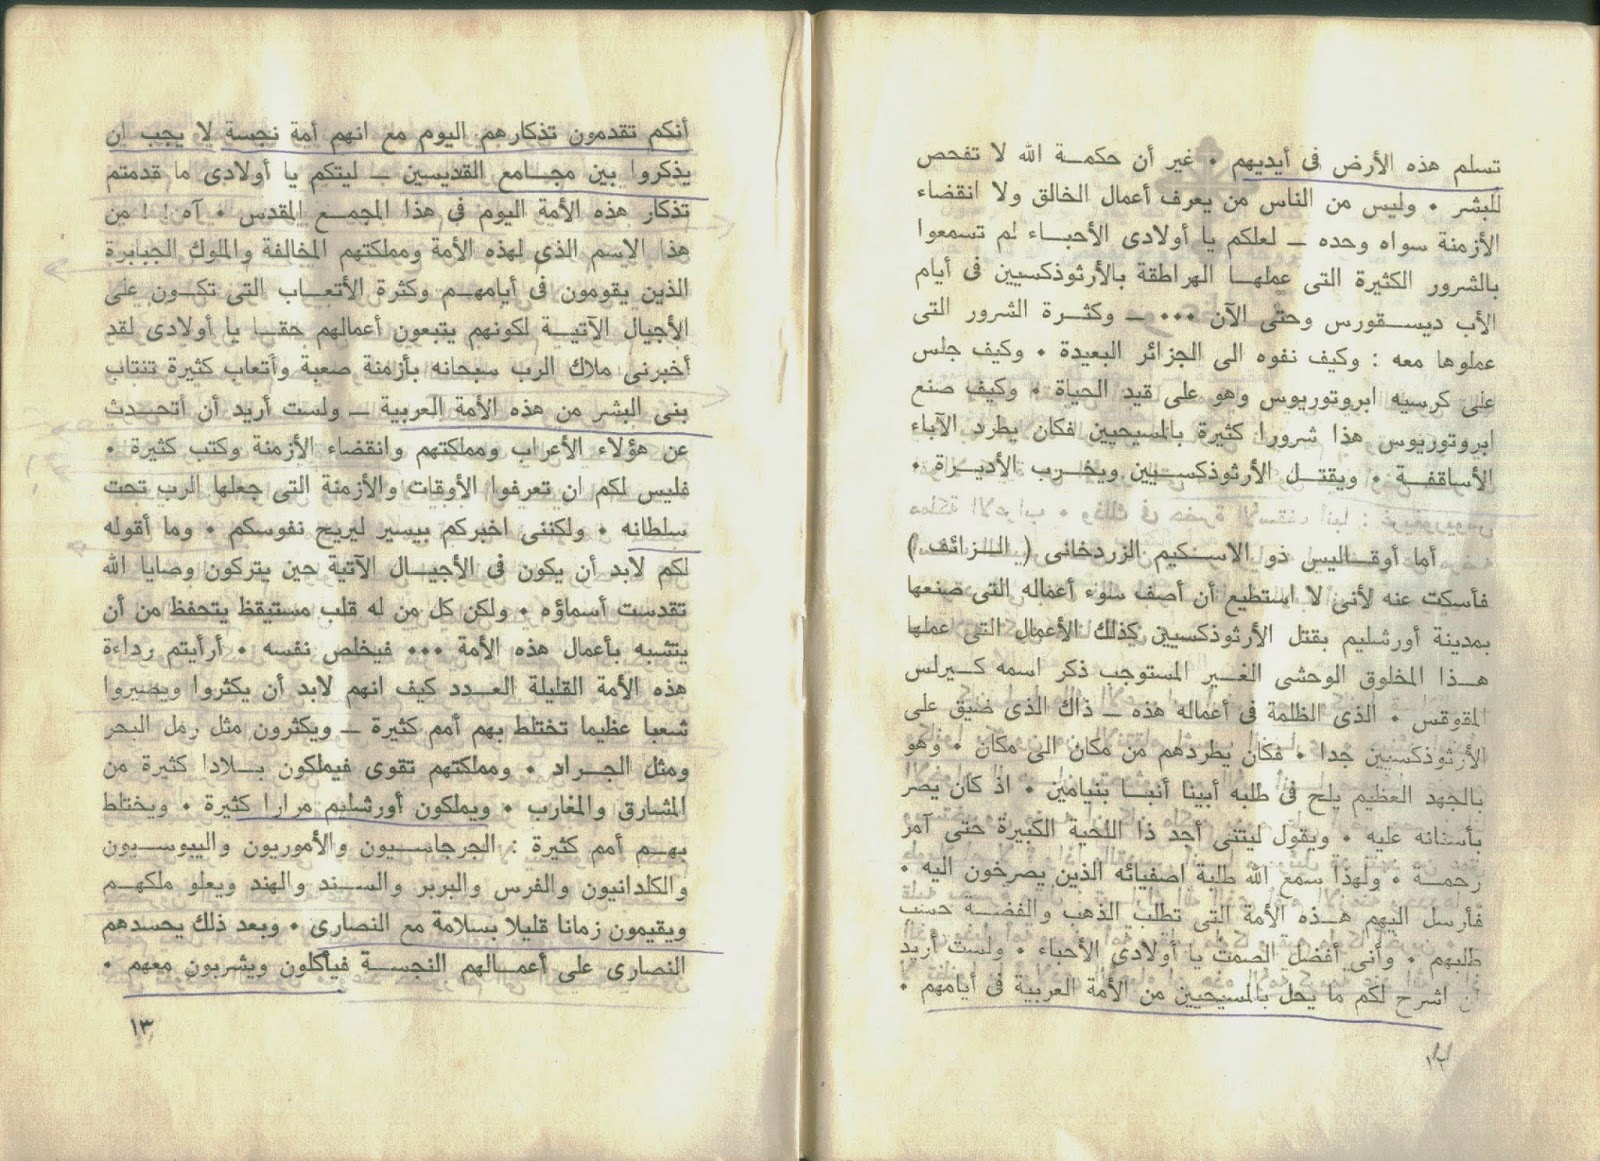 تسلم هذه الأرض فى أيديهم ٠ غير أن حكمــة الله لا تفحص
للبشر ٠ وليس من الناس من يعرف أعمال الخالق ولا انقضاء
الأزمنة سواه وحده ــ لعلكم يا أولادى الأحبــاء لم تسمعوا
بالشرور الكثيرة التى عملهــا الهراطقة بالأرثوذكسيين فى أيام
الأب ديسـقورس وحتى الآن ٠٠٠ ــ وكثــرة الشرور التى
عملوها معه : وكيف نفوه الى الجزائر البعيدة ٠ وكيف جلس
على كرسيه ابروتوريوس وهو على قيد الحياة ٠ وكيف صنع
ابروتوريوس هذا شرورا كثيرة بالمسيحيين فكان يطرد الآباء
الأساقفــة ٠ ويقتــل الأرثوذكســيين ويخــرب الأديــرة ٠
أما أوقــاليس ذو الاســكيم الزردخانى ( الــزائف )
فأسكت عنه لأنى لا استطيع أن أصف سوء أعماله التى صنعها
بمدينة أورشليم بقتل الأرثوذكسيين كذلك الأعمال التى عملها
هــذا المخلوق الوحشى الغــير المستوجب ذكر اسمه كــيرلس
المقوقس ٠ الذى الظلمة فى أعماله هذه ــ ذاك الذى ضيق على
الأرثوذكسيين جدا ٠ فكان يطردهم من مكان الى مكان ٠ وهو
بالجهد العظيم يلح فى طلبه أبينا أنبــا بنيامين ٠ اذ كان يصر
بأسنانه عليه ٠ ويقول ليتنى أجد ذا اللحية الكبيرة حتى آمر
رجمــة ٠ ولهذا سمع الله طلبة اصفيائه الذين يصرخون اليه ٠
فأرسل اليهم هــذه الأمة التى تطلب الذهب والفضــة حسب
طلبهم ٠ وأنى أفضل الصمت يا أولادى الأحباء ٠ ولست أريد
ان اشرح لكم ما يحل بالمسيحيين من الأمة العربية فى أيامهم ٠
أنكم تقدمون تذكارهم اليوم مع انهم أمة نجسة لا يجب ان
يذكروا بين مجــامع القديسين ــ ليتكم يا أولادى ما قدمتم
تذكار هذه الأمة اليوم فى هذا المجمــع المقدس ٠ آه ! ! من
هذا الاسم الذى لهذه الأمة ومملكتهم المخالفة والملوك الجبابرة
الذين يقومون فى أيامهــم وكثرة الأتعــاب التى تكــون على
الأجيال الآتيــة لكونهم يتبعون أعمالهم حقــا يا أولادى لقد
أخبرنى ملاك الرب سبحانه بأزمنة صعبة وأتعاب كثيرة تنتاب
بنى البشر من هذه الأمة العربية ــ ولست أريد أن أتحــدث
عن هؤلاء الأعراب ومملكتهم وانقضاء الأزمنة وكتب كثيرة ٠
فليس لكم ان تعرفوا الأوقات والأزمنة التى جعلها الرب تحت
سلطانه ٠ ولكننى اخبركم بيسير ليريح نفوسكم ٠ وما أقوله
لكم لابد أن يكون فى الأجيــال الآتية حين يتركون وصايا الله
تقدست أسماؤه ٠ ولكن كل من له قلب مستيقظ يتحفظ من أن
يتشبه بأعمال هذه الأمة ٠٠٠ فيخلص نفسه ٠ أرأيتم رداءة
هذه الأمة القليلة العــدد كيف انهم لابد أن يكثروا ويصيروا
شعبا عظيما تختلط بهم أمم كثيرة ــ ويكثرون مثل رمل البحر
ومثل الجــراد ٠ ومملكتهم تقوى فيملكون بــلادا كثيرة من
المشارق والمغارب ٠ ويملكون أورشليم مرارا كثيرة ٠ ويختلط
بهــم أمم كثيرة : الجرجاســيون والأموريون واليبوســيون
والكلدانيون والفرس والبربر والســند والهند ويعلو ملكهــم
ويقيمون زمانا قليلا بسلامة مع النصارى ٠ وبعد ذلك يحسدهم
النصارى على أعمــالهم النجســة فيأكلون ويشربون معهم ٠
١٣